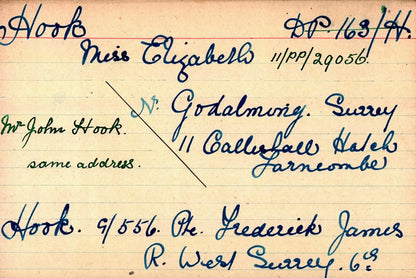 Hook DP. 163/H.
Miss Elizabeth 11/PP/29056.
Nr Godalming. Surrey
Mr John Hook. 11 Catteshall Hatch
same address. Farncombe
Hook. G/556. Pte. Frederick James
R. West Surrey. 6th